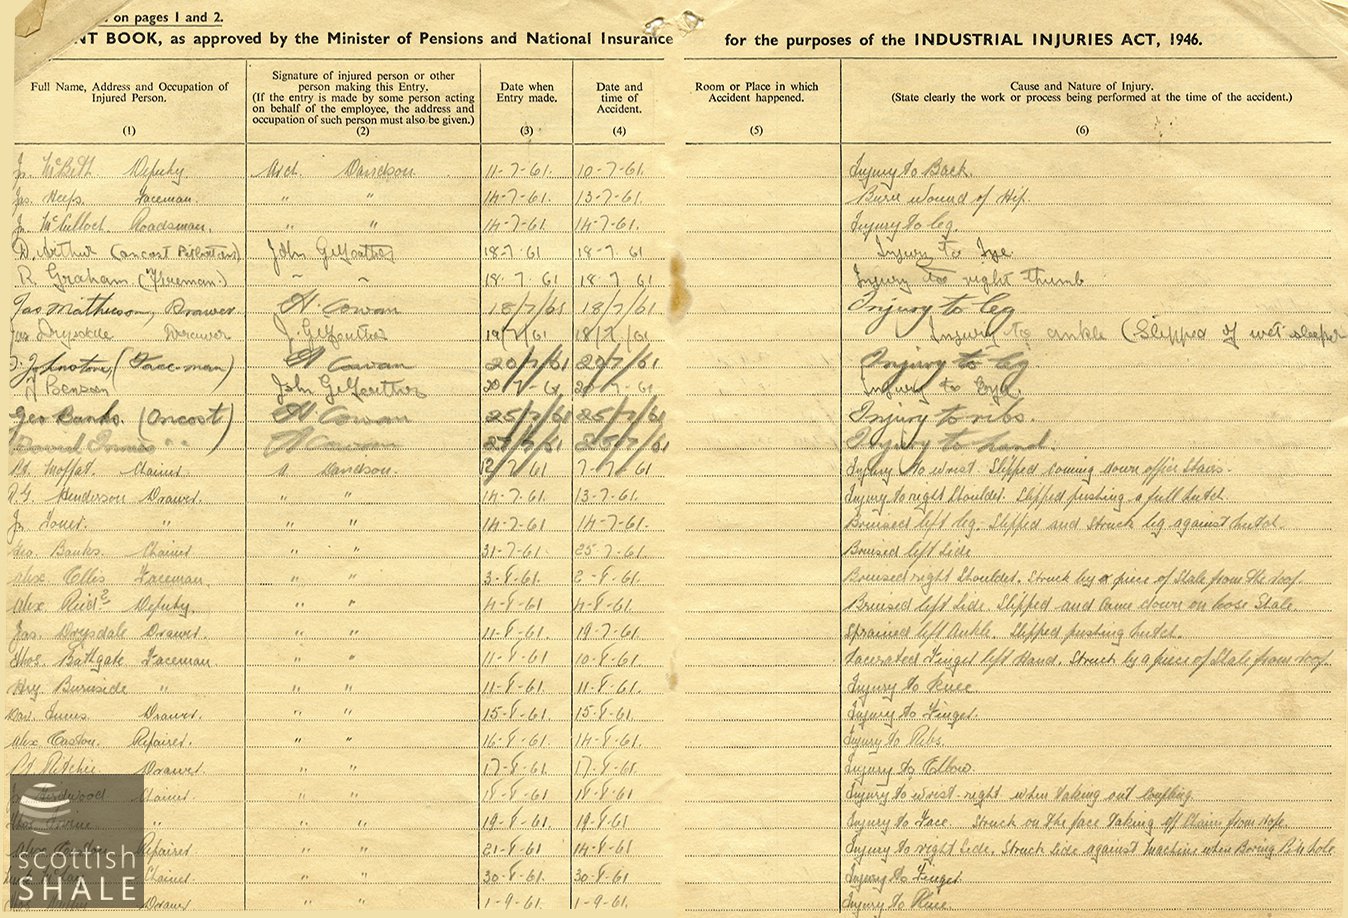 on pages 1 and 2.
NT BOOK, as approved by the Minister of Pensions and National Insurance for the purposes of the INDUSTRIAL INJURIES ACT, 1946.
Full Name, Address and Occupation of Injured Person. (1)
Signature of injured person or other person making this Entry. (If the entry is made by some person acting on behalf of the employee, the address and occupation of such person must also be given.) (2)
Date when Entry made. (3)
Date and time of Accident. (4)
Room or Place in which Accident happened. (5)
Cause and Nature of Injury. (State clearly the work or process being performed at the time of the accident.) (6)
Jn. McBeth Deputy Arch. Davidson 11-7-61. 10-7-61. Injury to Back.
Jas. Heeps. Faceman. " " 14-7-61. 13-7-61. Burn wound of Hip.
Jn. McCulloch Roadsman. " " 14-7-61. 14-7-61. Injury to leg.
D. Arthur (oncost John Gilfeather 18-7-61 18-7-61 Injury to Eye.
R Graham (Fireman.) " " 18-7-61 18-7-61 Injury to right thumb
Jas Mathieson, Drawer. H. Cowan 18/7/61 18/7/61 Injury to leg
Jas Drysdale Drawer J. Gilfeather 19/7/61 18/7/61 Injury to ankle (Slipped of wet sleeper
Johnstone, (Faceman) H Cowan 20/7/61 20/7/61 Injury to leg
Benson John Gilfeather 20-7-61 20-7-61 Injury to Eye.
Geo Banks. (Oncost) H Cowan 25/7/61 25/7/61 Injury to ribs.
David Innes " " H Cowan 25/7/61 25/7/61 Injury to hand.
Rt. Moffat. Chainer A Davidson. 7-61 7-7-61 Injury to wrist. Slipped coming down office stairs.
Henderson Drawer. " " 14-7-61. 13-7-61. Injury to right Shoulder. Slipped pushing a full hutch.
Jn " " " 14-7-61 14-7-61. Bruised left leg. Slipped and struck leg against hutch.
Geo. Banks. Chainer " " 31-7-61. 25-7-61. Bruised left side
Alex. Ellis Faceman. " " 3-8-61. 2-8-61. Bruised right Shoulder. Struck by a piece of Shale from the roof.
Alex. Reid Deputy. " " 4-8-61. 4-8-61. Bruised left side. Slipped and came down on loose Shale
Jas. Drysdale Drawer. " " 11-8-61. 19-7-61. Sprained left Ankle. Slipped pushing hutch.
Thos. Bathgate Faceman " " 11-8-61. 10-8-61. Lacerated Finger left Hand. Struck by a piece of Shale from roof.
Hry. Burnside " " " 11-8-61. 11-8-61. Injury to Knee
Dav. Innes Drawer. " " 15-8-61. 15-8-61. Injury to Finger.
Alex Easton. Repairer. " " 16-8-61. 14-8-61. Injury to Ribs.
Rt Ritchie Drawer. " " 17-8-61 17-8-61. Injury to Elbow.
Chainer. " " 18-8-61 18-8-61 Injury to wrist-right when taking out coupling.
Thos. " " " 19-8-61. 19-8-61 Injury to Face. Struck on the face taking off Chain from rope.
Alex Repairer " " 21-8-61 14-8-61. Injury to right side. Struck side against Machine when Boring Pin hole
Chainer. " " 30-8-61 30-8-61 Injury to Finger
Drawer " " 1-9-61. 1-9-61. Injury to Knee.
scottish
SHALE